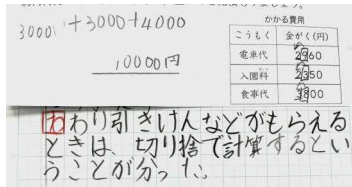 3000 +3000+4000
10000円
かかる費用
こうもく 金がく(円)
電車代 2960
入園料 2350
食事代 3800
わわり引きけんなどがもらえる
ときは、切り捨て計算するとい
うことが分った。